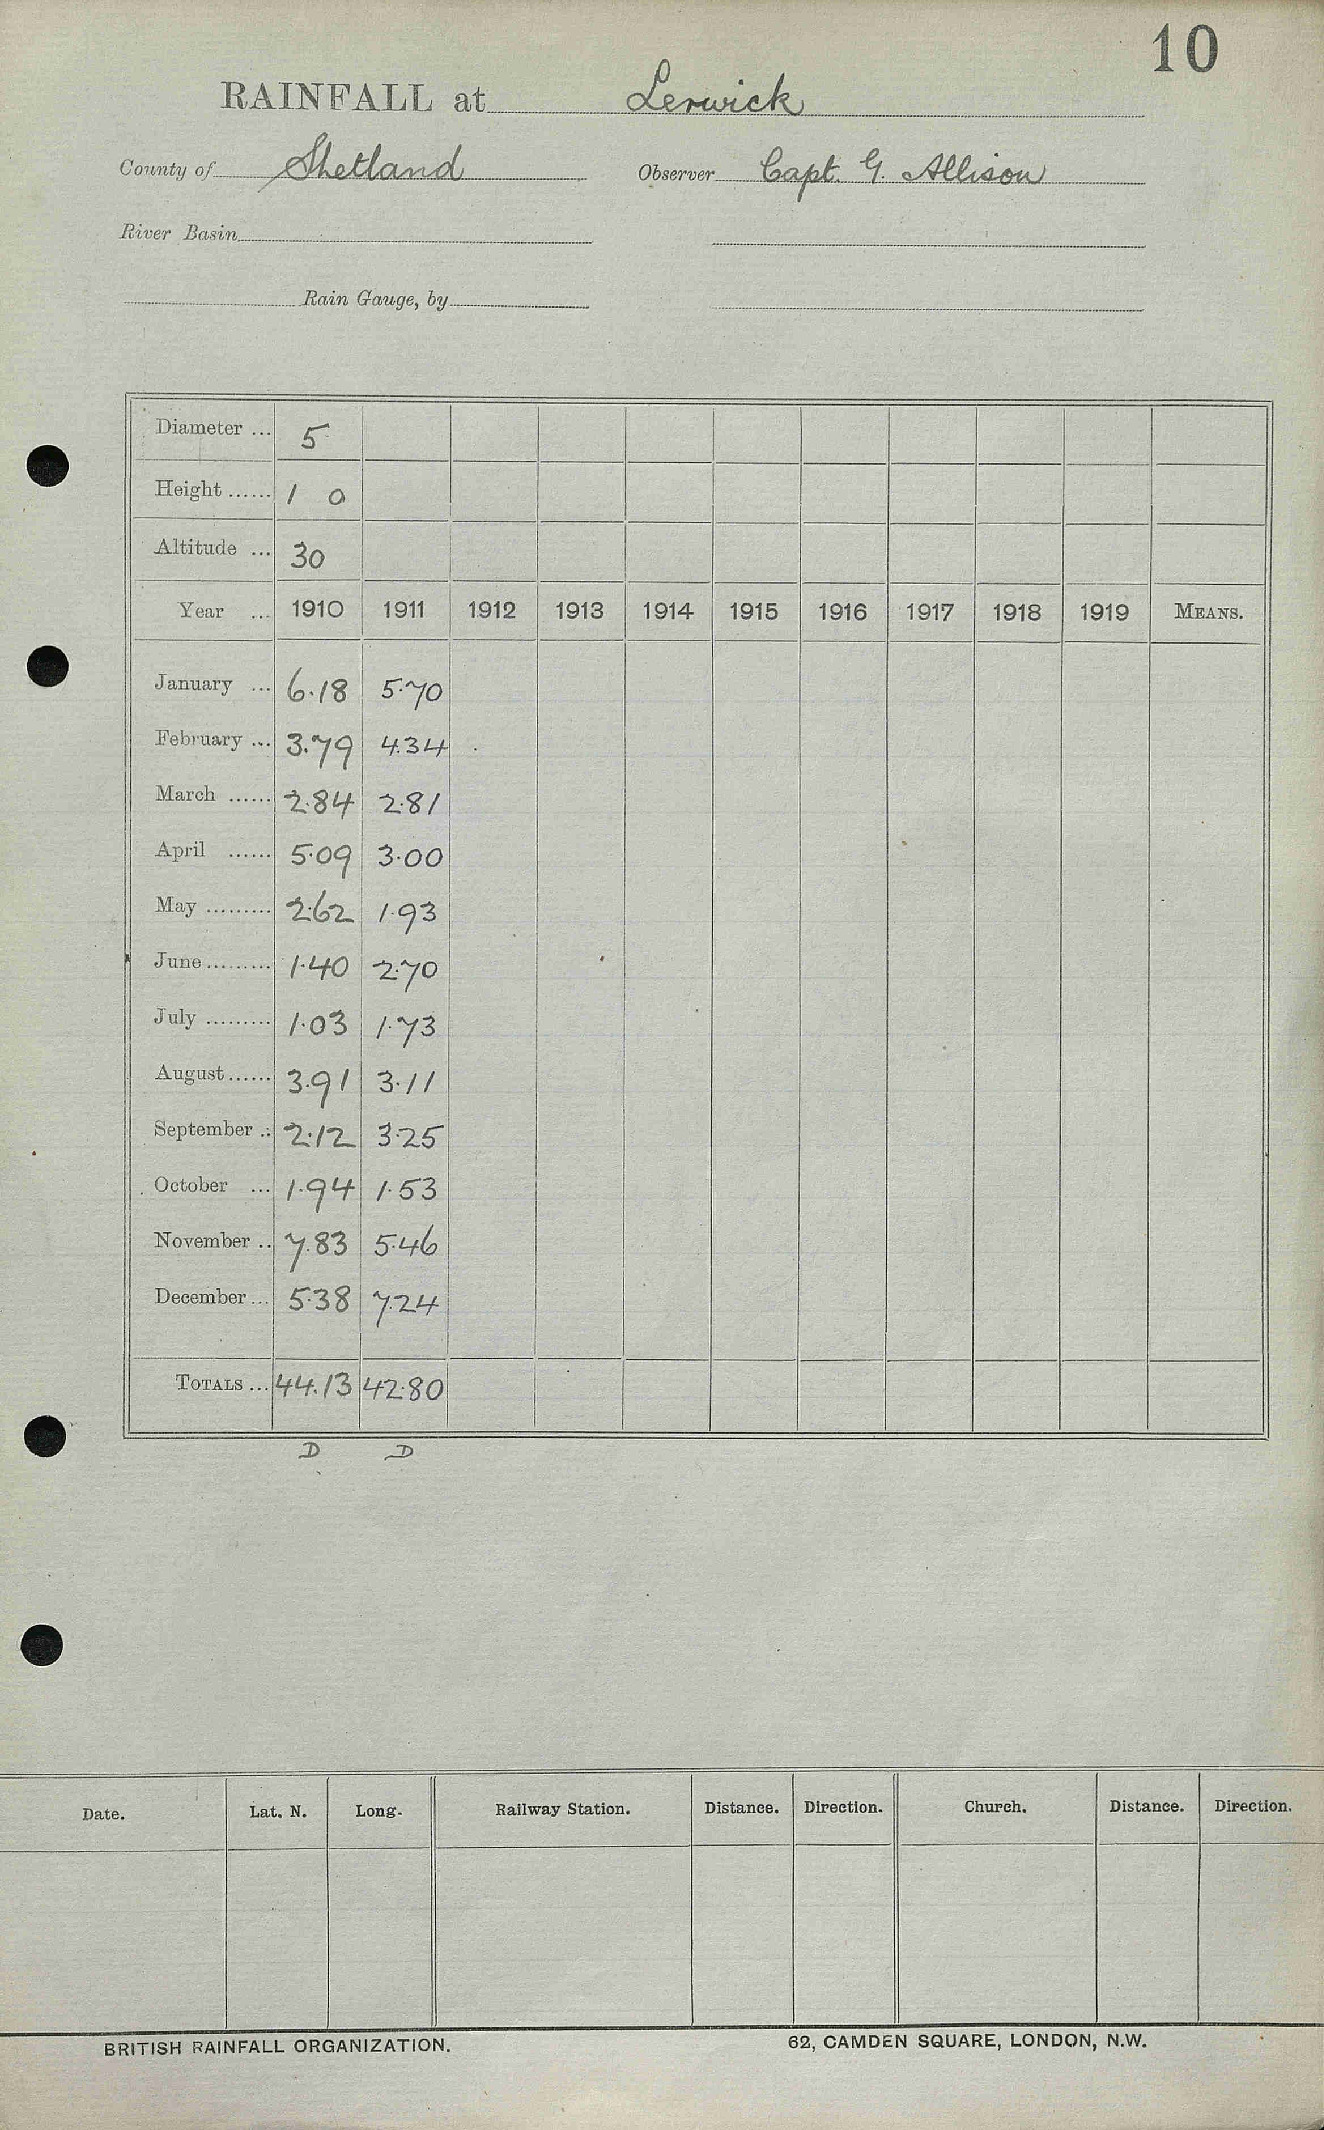 10
RAINFALL at Lerwick
County of Shetland Observer Capt. G. Allison
River Basin
Rain Gauge, by
Diameter ... 5
Height ...... 1 0
Altitude ... 30
Year ... 1910 1911 1912 1913 1914 1915 1916 1917 1918 1919 MEANS.
January ... 6.18 5.70
February ... 3.79 4.34
March ...... 2.84 2.81
April ...... 5.09 3.00
May ......... 2.62 1.93
June ......... 1.40 2.70
July ......... 1.03 1.73
August ...... 3.91 3.11
September .. 2.12 3.25
October ... 1.94 1.53
November .. 7.83 5.46
December ... 5.38 7.24
TOTALS ... 44.13 42.80
D D
Date. Lat. N. Long. Railway Station. Distance. Direction. Church. Distance. Direction.
BRITISH RAINFALL ORGANIZATION. 62, CAMDEN SQUARE, LONDON, N.W.